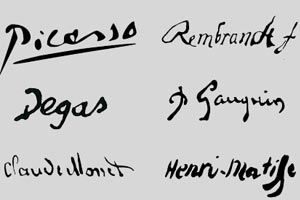 Picasso
Rembrandt f
Degas
P Gauguin
Claude Monet
Henri-Matisse